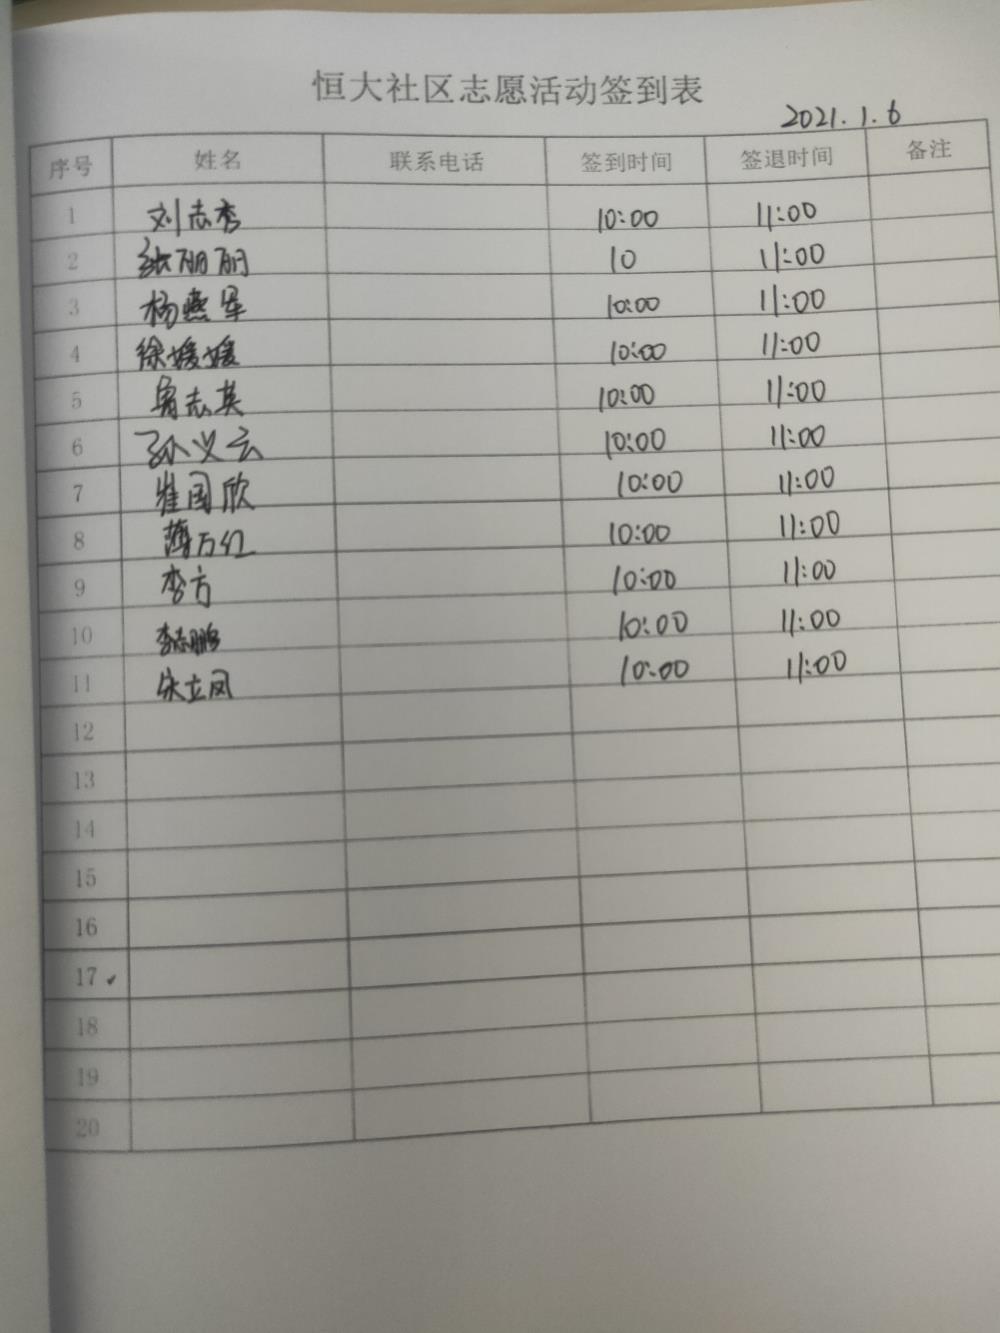 恒大社区志愿活动签到表
2021.1.6
序号 姓名 联系电话 签到时间 签退时间 备注
1 刘志秀 10:00 11:00
2 张丽丽 10 11:00
3 杨燕军 10:00 11:00
4 徐媛媛 10:00 11:00
5 志英 10:00 11:00
6 孙义云 10:00 11:00
7 崔国欣 10:00 11:00
8 薄万红 10:00 11:00
9 李方 10:00 11:00
10 李志鹏 10:00 11:00
11 宋立凤 10:00 11:00
12
13
14
15
16
17
18
19
20